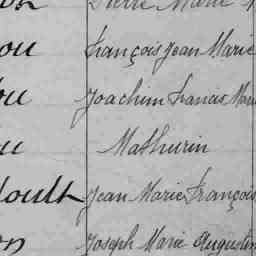 Pierre Marie
ou François Jean Marie
ou Joachim Marie
u Mathurin
doult Jean Marie François
on Joseph Marie Augustin